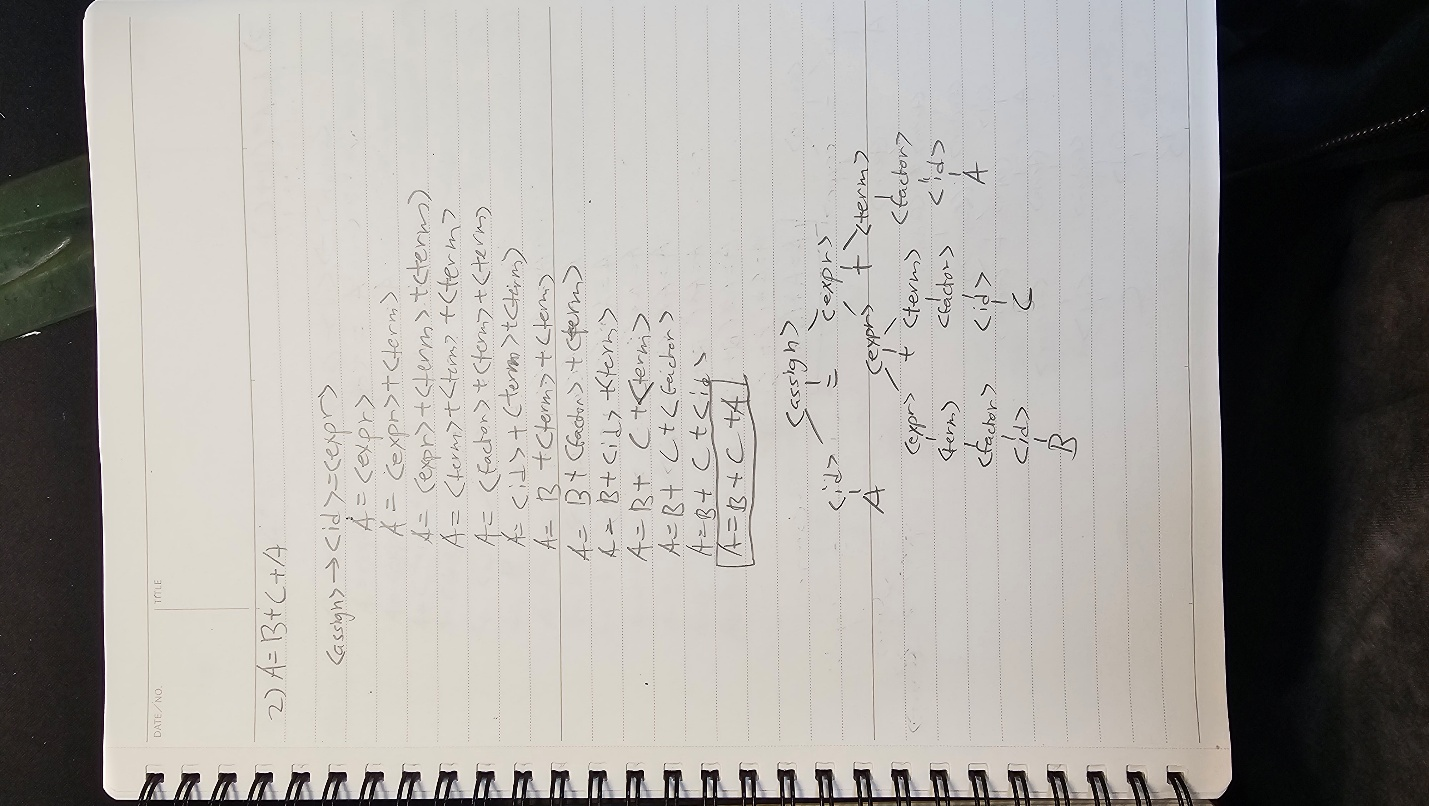 DATE/NO. TITLE
2) A=B+C+A
<assign> → <id>=<expr>
A=<expr>
A= <expr>+<term>
A= <expr>+<term>+<term>
A= <term>+<term>+<term>
A= <factor>+<term>+<term>
A= <id>+<term>+<term>
A= B+<term>+<term>
A= B+<factor>+<term>
A= B+<id>+<term>
A=B+ C+<term>
A=B+ C+<factor>
A=B+ C+<id>
A=B+C+A
<assign>
<id> = <expr>
A <expr> + <term>
<expr> + <term> <factor>
<term> <factor> <id>
<factor> <id> A
<id> C
B